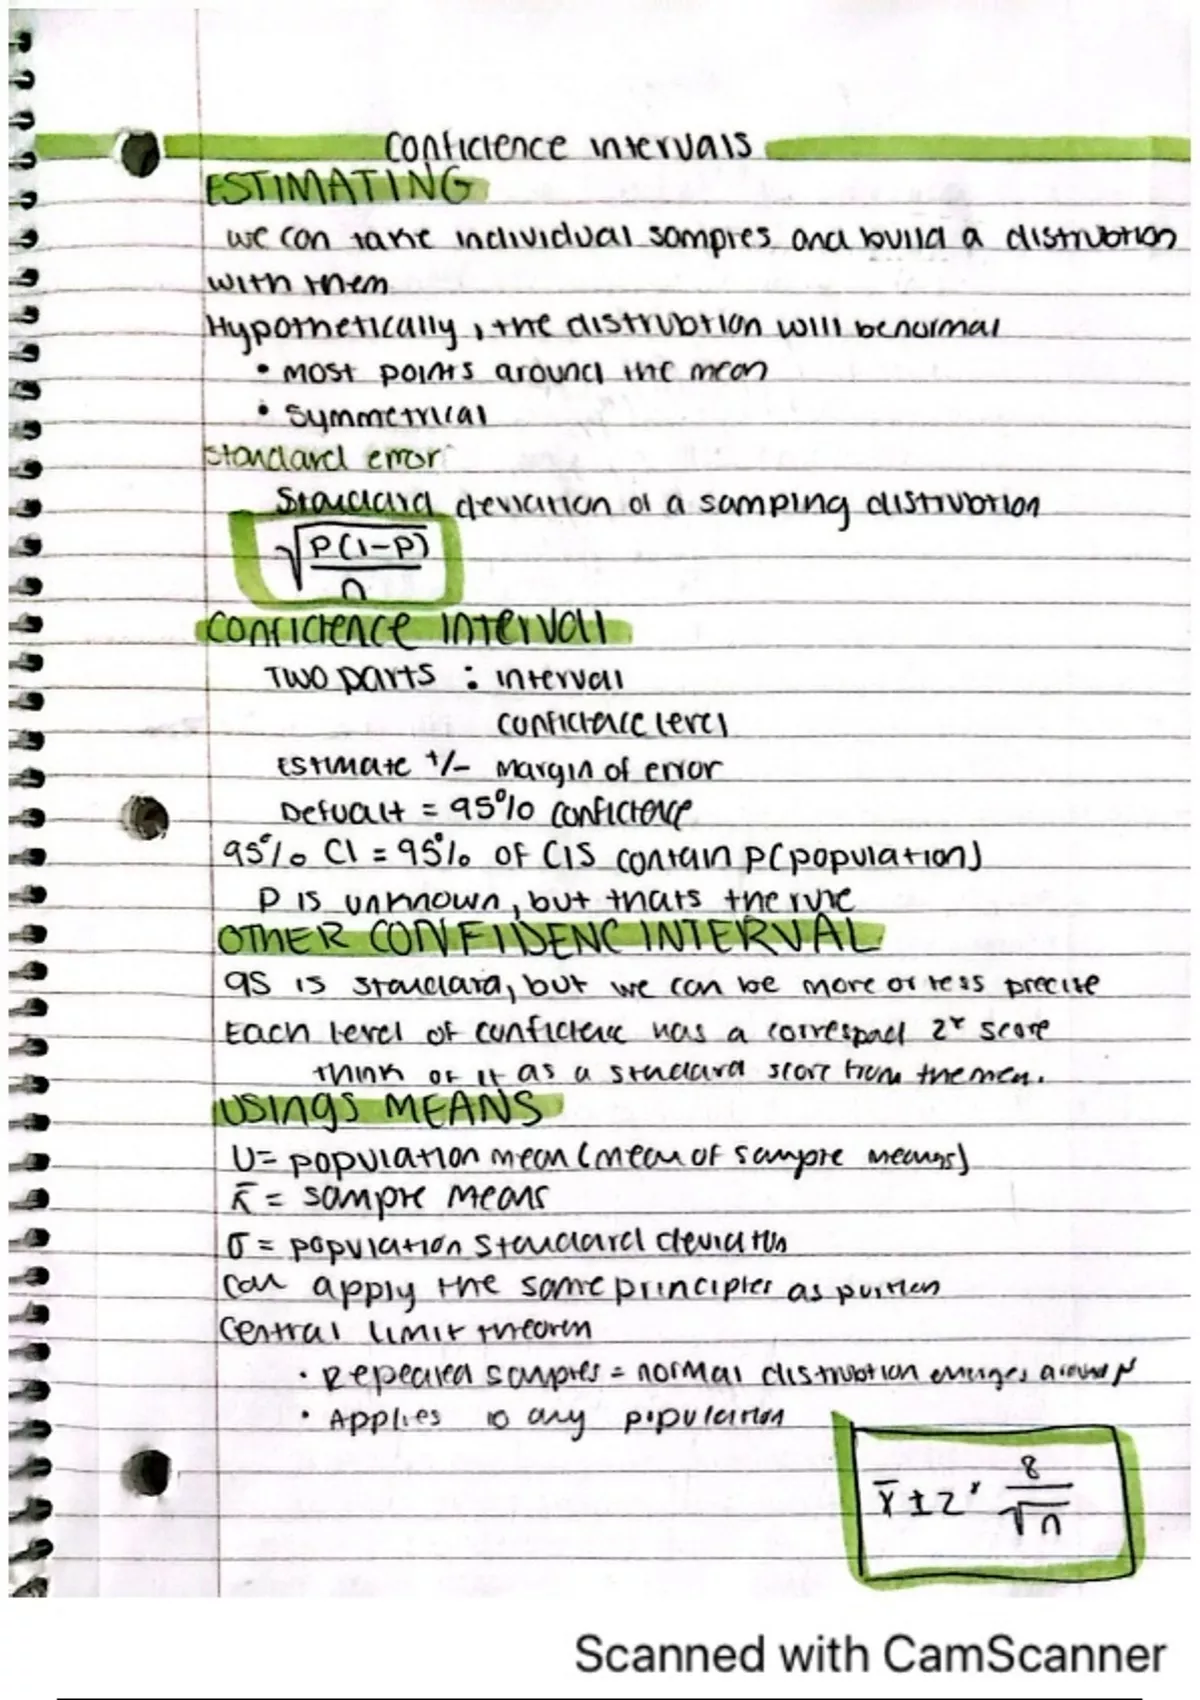 Confidence intervals
ESTIMATING
we can take individual samples and build a distrubtion
with them
Hypothetically, the distrubtion will be normal
• most points around the mean
• symmetrical
standard error
Standard deviation of a samping distrubtion
√P(1-P)/n
Confidence intervall
Two parts : intervall
confidence level
Estimate +/- margin of error
Defualt = 95% confidence
95% CI = 95% of CIS contain P(population)
P is unknown, but thats the rule
OTHER CONFIDENC INTERVAL
95 is standard, but we can be more or less precise
Each level of confidence has a correspad z* score
think of it as a standard score from the mean.
USINGS MEANS
U= population mean (mean of sample means)
x̄ = sample means
σ = population standard deviation
can apply the same principles as
Central limit theorem
• Repeated samples = normal distrubtion emerges around μ
• Applies to any population
x̄ ± z* 8/√n
Scanned with CamScanner